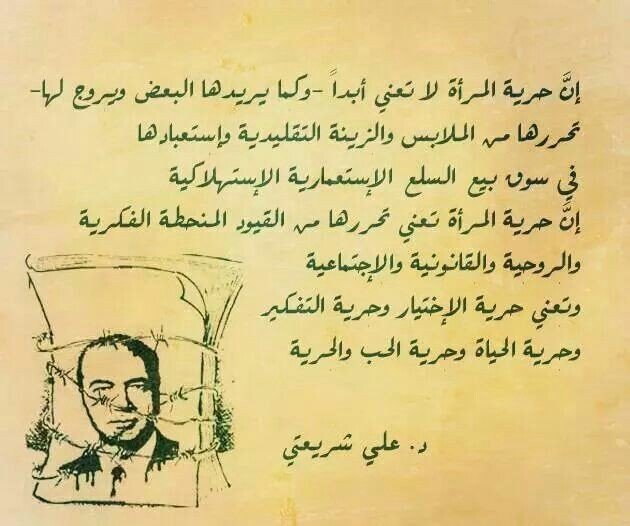 إنَّ حرية المرأة لا تعني أبداً -وكما يريدها البعض ويروج لها-
تحررها من الملابس والزينة التقليدية وإستعبادها
في سوق بيع السلع الإستعمارية الإستهلاكية
إنَّ حرية المرأة تعني تحررها من القيود المنحطة الفكرية
والروحية والقانونية والإجتماعية
وتعني حرية الإختيار وحرية التفكير
وحرية الحياة وحرية الحب والحرية
د. علي شريعتي